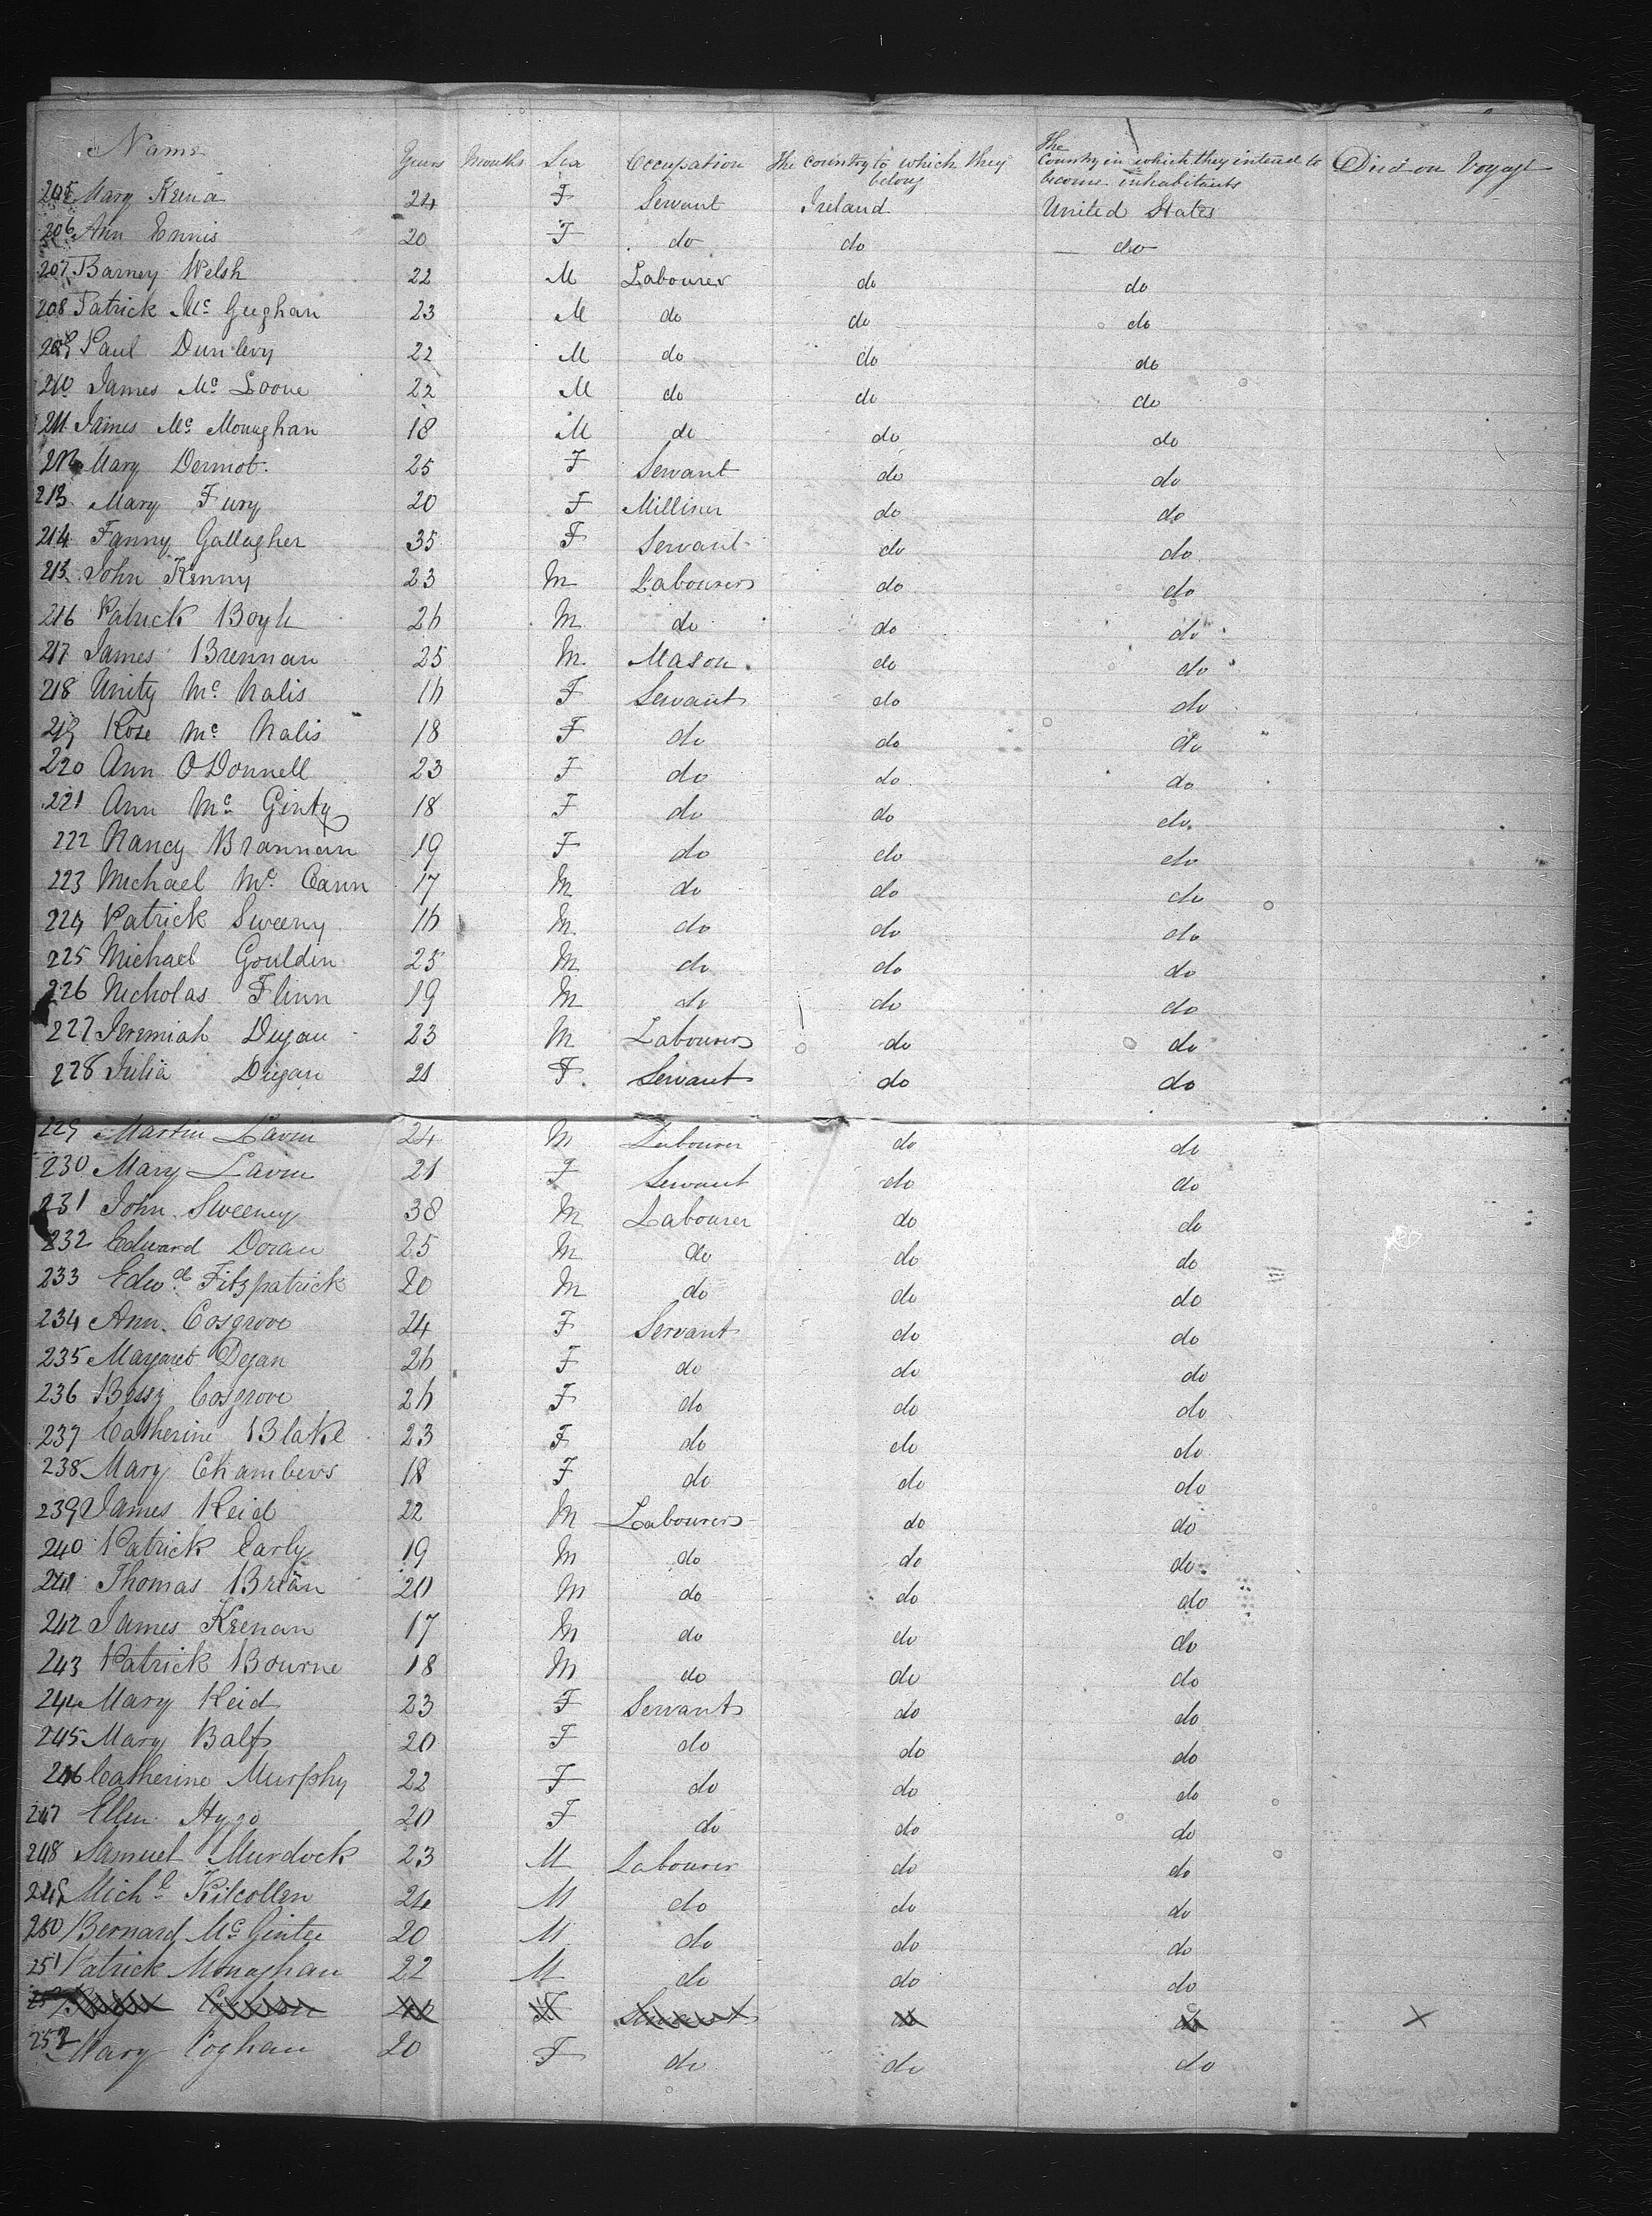 Name Years Months Sex Occupation The Country to which they belong The Country in which they intend to become inhabitants Died on Voyage
205 Mary Keena 24 F Servant Ireland United States
206 Ann Ennis 20 F do do do
207 Barney Welsh 22 M Labourer do do
208 Patrick Mc Gughan 23 M do do do
209 Paul Dunlevy 22 M do do do
210 James Mc Loone 22 M do do do
211 James Mc Monughan 18 M do do do
212 Mary Dermot 25 F Servant do do
213 Mary Fury 20 F Milliner do do
214 Fanny Gallagher 35 F Servant do do
215 John Kenny 23 M Labourers do do
216 Patrick Boyle 26 M do do do
217 James Brennan 25 M Mason do do
218 Unity Mc Nalis 16 F Servant do do
219 Rose Mc Nalis 18 F do do do
220 Ann O'Donnell 23 F do do do
221 Ann Mc Ginty 18 F do do do
222 Nancy Brannan 19 F do do do
223 Michael Mc Cann 17 M do do do
224 Patrick Sweeny 16 M do do do
225 Michael Gouldin 25 M do do do
226 Nicholas Flinn 19 M do do do
227 Jeremiah Dugan 23 M Labourers do do
228 Julia Dugan 21 F Servant do do
229 Martin Lavin 24 M Labourer do do
230 Mary Lavin 21 F Servant do do
231 John Sweeney 38 M Labourer do do
232 Edward Doran 25 M do do do
233 Edwd Fitzpatrick 20 M do do do
234 Ann Cosgrove 24 F Servant do do
235 Margaret Degan 26 F do do do
236 Bessy Cosgrove 26 F do do do
237 Catherine Blake 23 F do do do
238 Mary Chambers 18 F do do do
239 James Reid 22 M Labourers do do
240 Patrick Early 19 M do do do
241 Thomas Brian 20 M do do do
242 James Keenan 17 M do do do
243 Patrick Bourne 18 M do do do
244 Mary Reid 23 F Servants do do
245 Mary Balfs 20 F do do do
246 Catherine Murphy 22 F do do do
247 Ellen Hygo 20 F do do do
248 Samuel Murdock 23 M Labourer do do
249 Michl Kilcollen 24 M do do do
250 Bernard Mc Gintee 20 M do do do
251 Patrick Monaghan 22 M do do do
F Servant do do X
252 Mary Coghan 20 F do do do